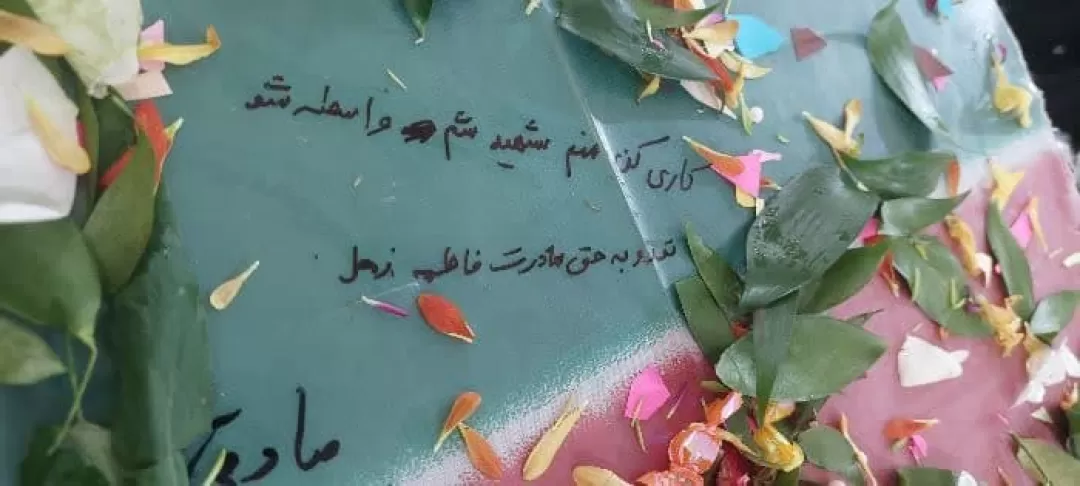 کاری کن منم شهید شم واسطه شو
تورو به حق مادرت فاطمه زهرا
مادر